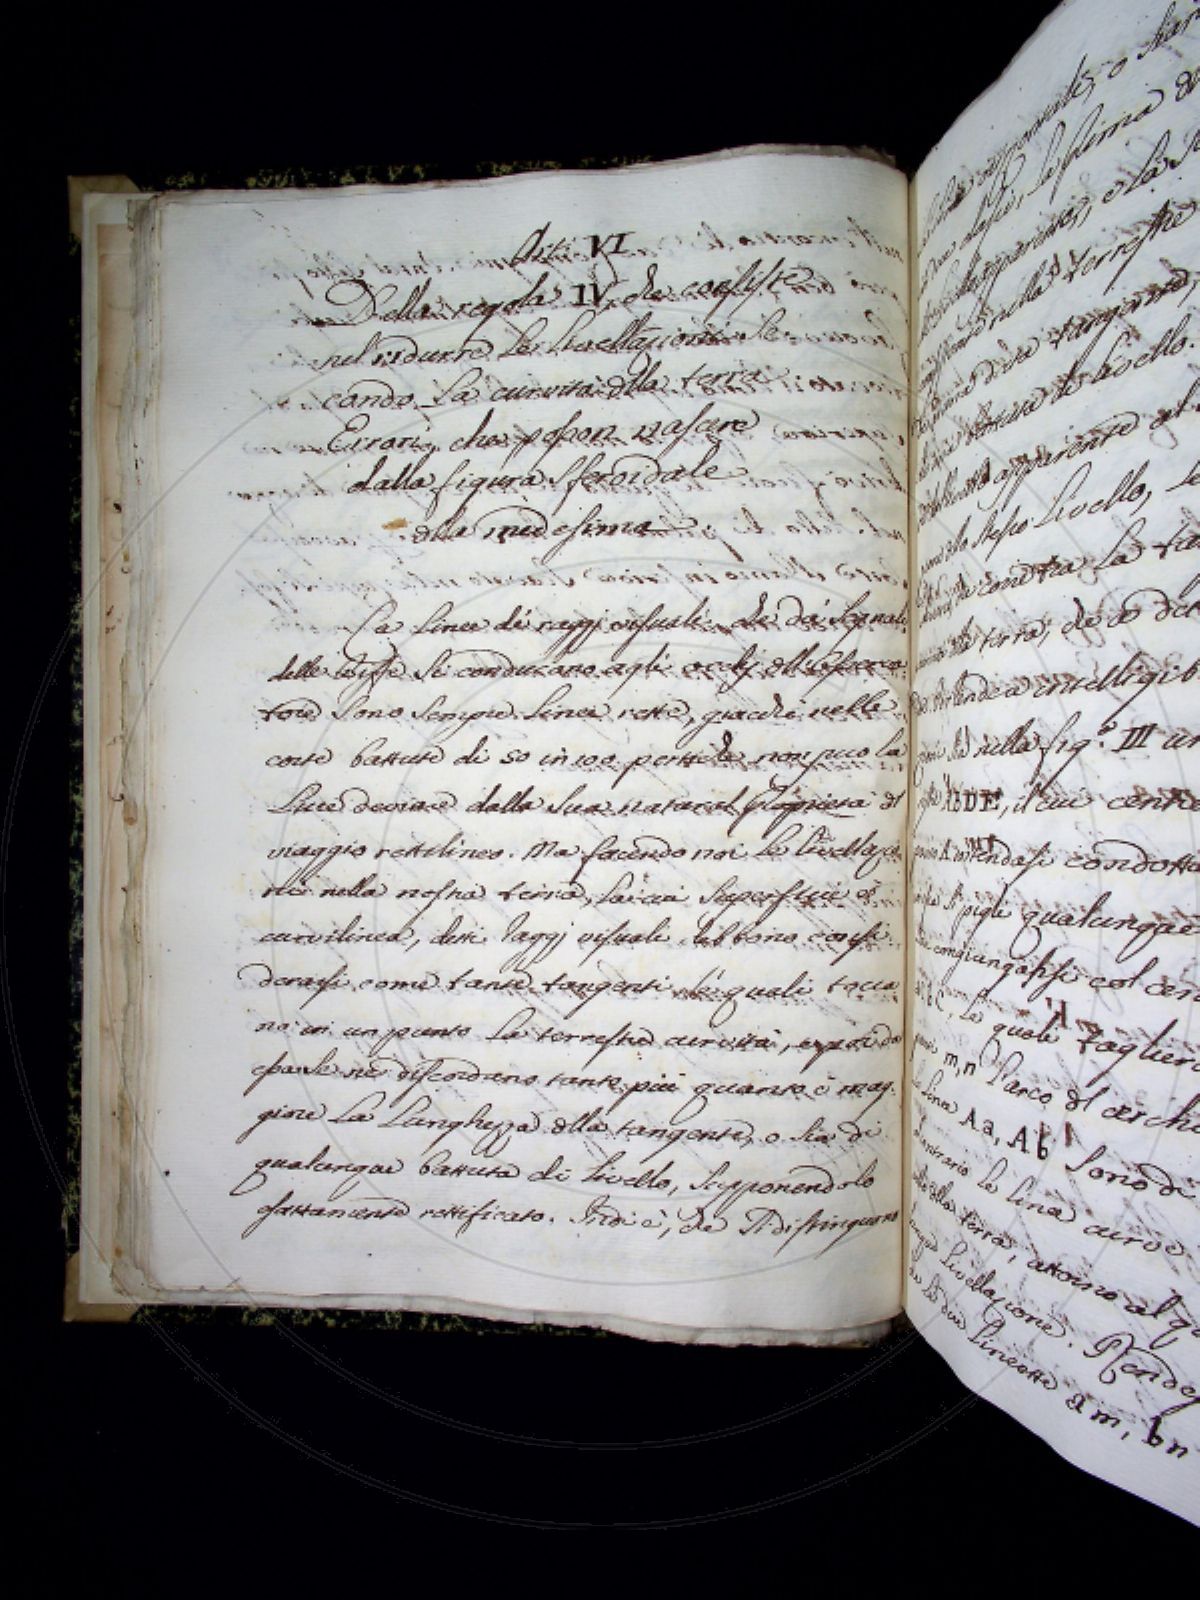 Art. VI
Della regola IV, che consiste
nel ridurre le livellazioni se-
condo la curvità dlla terra
Errori, che posson nascere
dalla figura sferoidale
dlla medesima
La linea dé raggj visuali che da' segnali
delle biffe si conducano agli occhj dll'osserva-
tore sono sempre linee rette, giacchè nelle
corte battute di 50 in 100 pertiche non può la
luce deviare dalla sua natural propietà dl
viaggio rettilineo. Ma facendo noi le livellazio-
ni nella nostra terra, la cui superficie è
curvilinea, detti raggj visuali debbono consi-
derarsi come tante tangenti le quali tocca-
no in un punto la terrestre curvità, e poi da
essa se ne discordano tanto più quanto è mag-
giore la lunghezza dlla tangente, o sia di
qualunque battuta di livello, supponendolo
esattamente rettificato. Indi è, che si distinguono
o sia
la prima
apparente, e la
nella terrestre
tangente,
battuta di livello.
apparente
dllo stesso livello, le
la
terra, che è
Per rendere intelligib
nella fig.ª III un
ABDE, il cui centr
intendasi condotta
si pigli qualunque
congiungassi col cen
le quali taglier
m, n l'arco dl cerchi
linea Aa, Ab sono di
le linee curve
dlla terra, attorno al qu
livellazione. Rendes
le due lineette am, bn